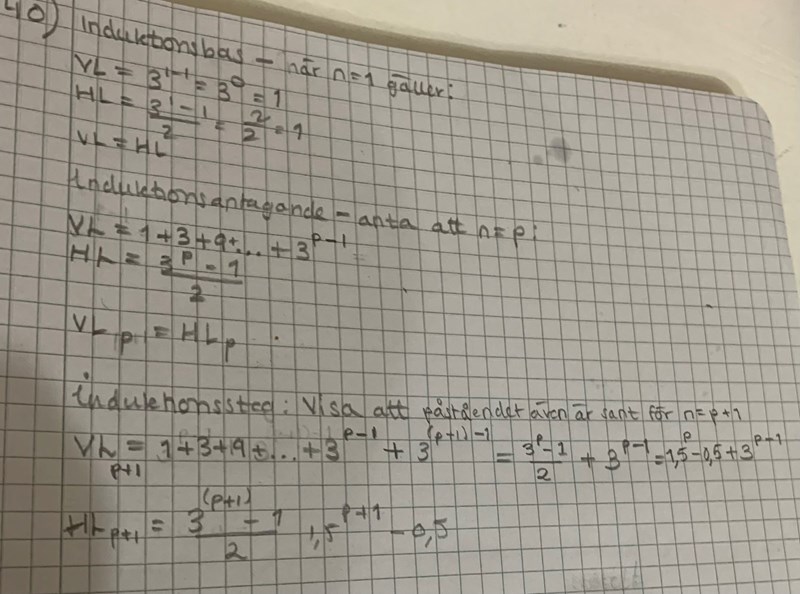 40) Induktionsbas - när n=1 gäller:
VL = 3^{1-1} = 3^0 = 1
HL = \frac{3^1 - 1}{2} = \frac{2}{2} = 1
VL = HL
Induktionsantagande - anta att n=p:
VL = 1+3+9+... + 3^{p-1}
HL = \frac{3^p - 1}{2}
VL_p = HL_p .
induktionssteg: Visa att påståendet även är sant för n=p+1
VL_{p+1} = 1+3+9+... + 3^{p-1} + 3^{(p+1)-1} = \frac{3^p - 1}{2} + 3^{p-1} = 1,5^p - 0,5 + 3^{p-1}
HL_{p+1} = \frac{3^{(p+1)} - 1}{2} 1,5^{p+1} - 0,5